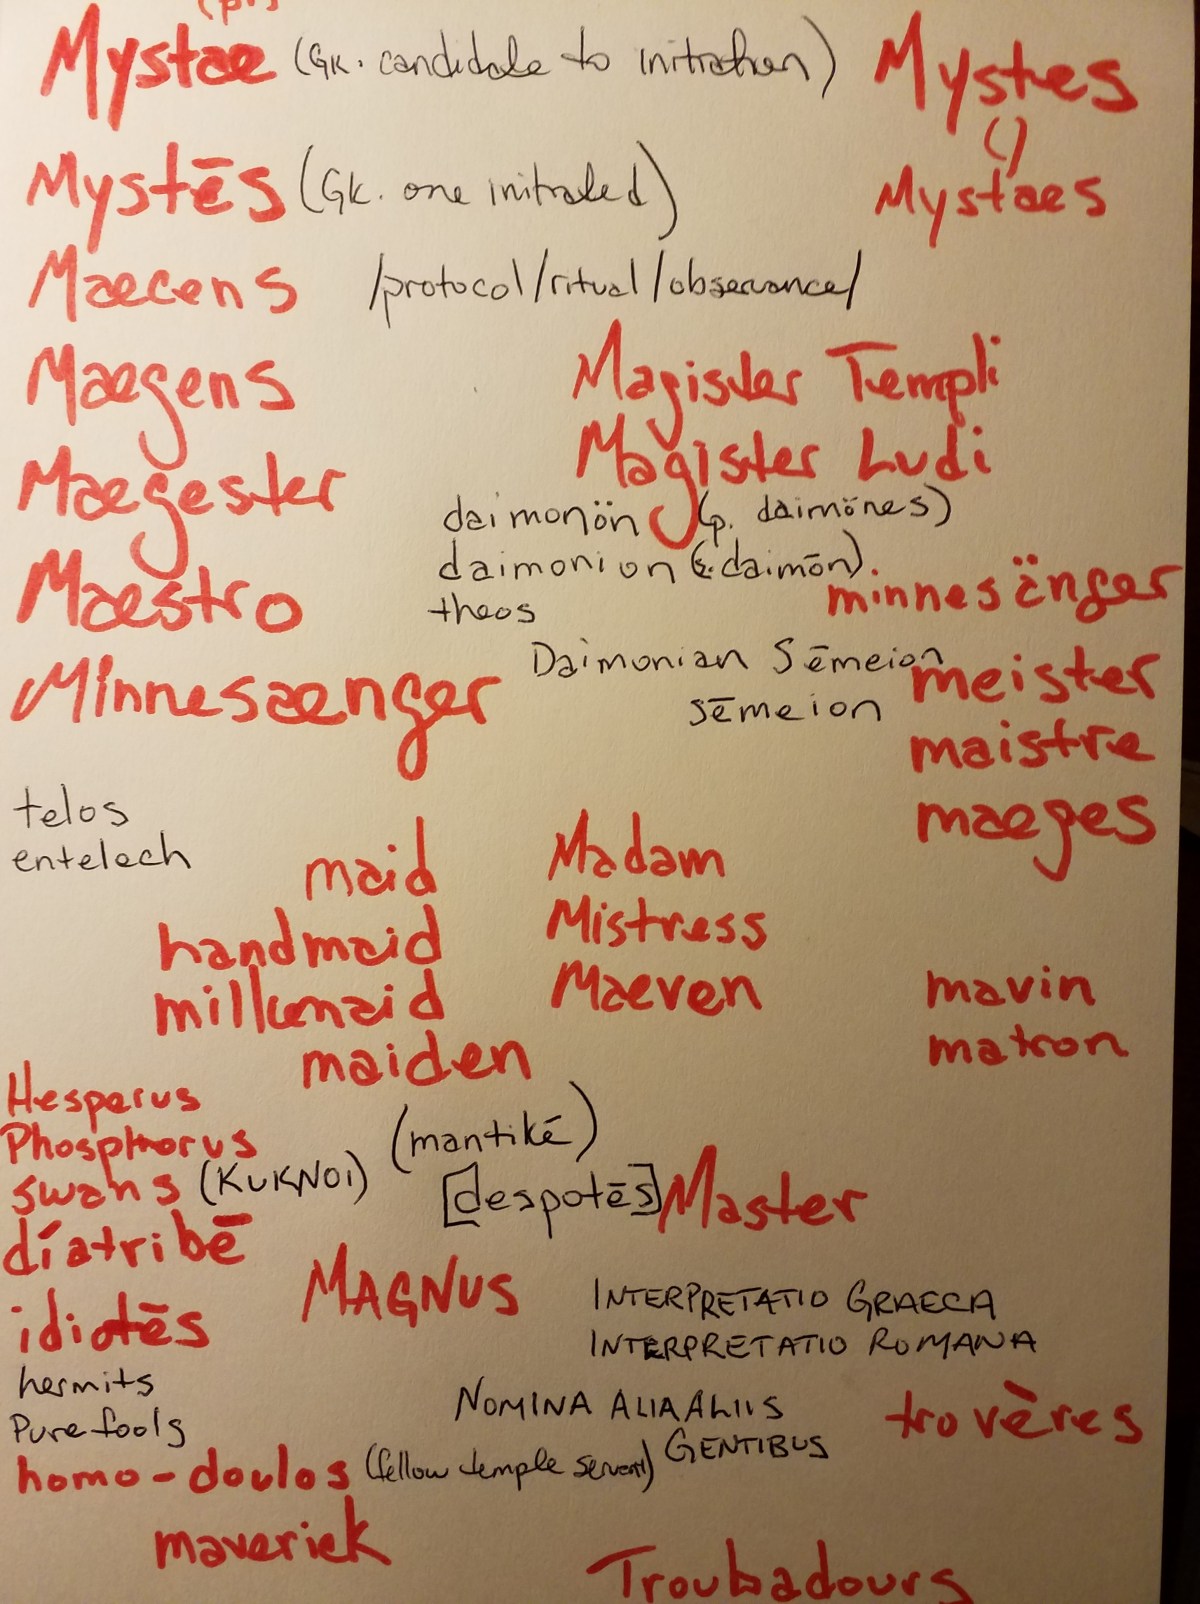 (pl)
Mystae (Gk. candidate to initiation) Mystes
()
Mystēs (Gk. one initiated) Mystaes
Maecens /protocol/ritual/observance/
Maegens Magister Templi
Magister Ludi
Maegester daimonön (p. daimönes)
daimonion (s. daimōn).
Maestro theos minnesänger
Minnesaenger Daimonian Sēmeion meister
sēmeion
maistre
telos maeges
entelech maid Madam
handmaid Mistress
milkmaid Maeven mavin
maiden matron
Hesperus
Phosphorus (mantikē)
swans (KUKNOI) [despotēs] Master
díatribē
MAGNUS INTERPRETATIO GRAECA
idiotēs INTERPRETATIO ROMANA
hermits
Pure fools NOMINA ALIA ALIIS trovères
homo-doulos (fellow temple servant) GENTIBUS
maverick
Troubadours